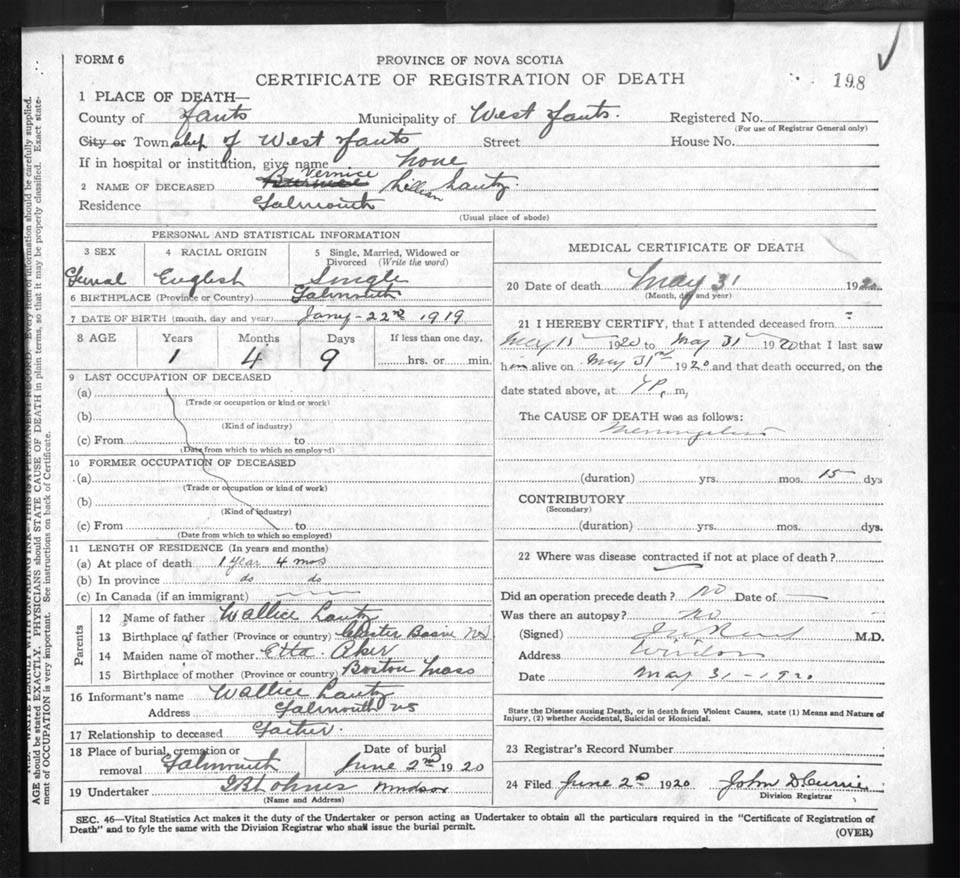 FORM 6
PROVINCE OF NOVA SCOTIA
CERTIFICATE OF REGISTRATION OF DEATH
198
1 PLACE OF DEATH—
County of Hants Municipality of West Hants. Registered No.
(For use of Registrar General only)
City or Township of West Hants Street House No.
If in hospital or institution, give name none
2 NAME OF DECEASED Vernice Lillian Lantz.
Residence Falmouth
(Usual place of abode)
PERSONAL AND STATISTICAL INFORMATION
3 SEX 4 RACIAL ORIGIN 5 Single, Married, Widowed or Divorced (Write the word)
Femal English Single
6 BIRTHPLACE (Province or Country) Falmouth
7 DATE OF BIRTH (month, day and year) Jany - 22nd 1919
8 AGE Years Months Days If less than one day,
1 4 9 hrs. or min.
9 LAST OCCUPATION OF DECEASED
(a)
(Trade or occupation or kind or work)
(b)
(Kind of industry)
(c) From to
(Date from which to which so employed)
10 FORMER OCCUPATION OF DECEASED
(a)
(Trade or occupation or kind of work)
(b)
(Kind of industry)
(c) From to
(Date from which to which so employed)
11 LENGTH OF RESIDENCE (In years and months)
(a) At place of death 1 Year 4 mos
(b) In province do do
(c) In Canada (if an immigrant)
Parents
12 Name of father Wallice Lantz
13 Birthplace of father (Province or country) Chester Basin NS
14 Maiden name of mother Etta Aker
15 Birthplace of mother (Province or country) Boston Mass
16 Informant's name Wallice Lantz
Address Falmouth NS
17 Relationship to deceased Father.
18 Place of burial, cremation or removal Falmouth Date of burial June 2nd 1920
19 Undertaker Windsor
(Name and Address)
MEDICAL CERTIFICATE OF DEATH
20 Date of death May 31 1920
(Month, day and year)
21 I HEREBY CERTIFY, that I attended deceased from
May 15 1920 to May 31 1920 that I last saw
h alive on May 31st 1920 and that death occurred, on the
date stated above, at 7 P. m,
The CAUSE OF DEATH was as follows:
(duration) yrs. mos. 15 dys
CONTRIBUTORY
(Secondary)
(duration) yrs. mos. dys.
22 Where was disease contracted if not at place of death?
Did an operation precede death? NO Date of —
Was there an autopsy? NO
(Signed) M.D.
Address Windsor
Date May 31 - 1920
State the Disease causing Death, or in death from Violent Causes, state (1) Means and Nature of
Injury, (2) whether Accidental, Suicidal or Homicidal.
23 Registrar's Record Number
24 Filed June 2nd 1920 John D. Currie
Division Registrar
SEC. 46—Vital Statistics Act makes it the duty of the Undertaker or person acting as Undertaker to obtain all the particulars required in the "Certificate of Registration of
Death" and to fyle the same with the Division Registrar who shall issue the burial permit.
(OVER)
N.B.—WRITE PLAINLY WITH UNFADING INK—THIS IS A PERMANENT RECORD. Every item of information should be carefully supplied.
AGE should be stated EXACTLY. PHYSICIANS should STATE CAUSE OF DEATH in plain terms, so that it may be properly classified. Exact state-
ment of OCCUPATION is very important. See instructions on back of Certificate.